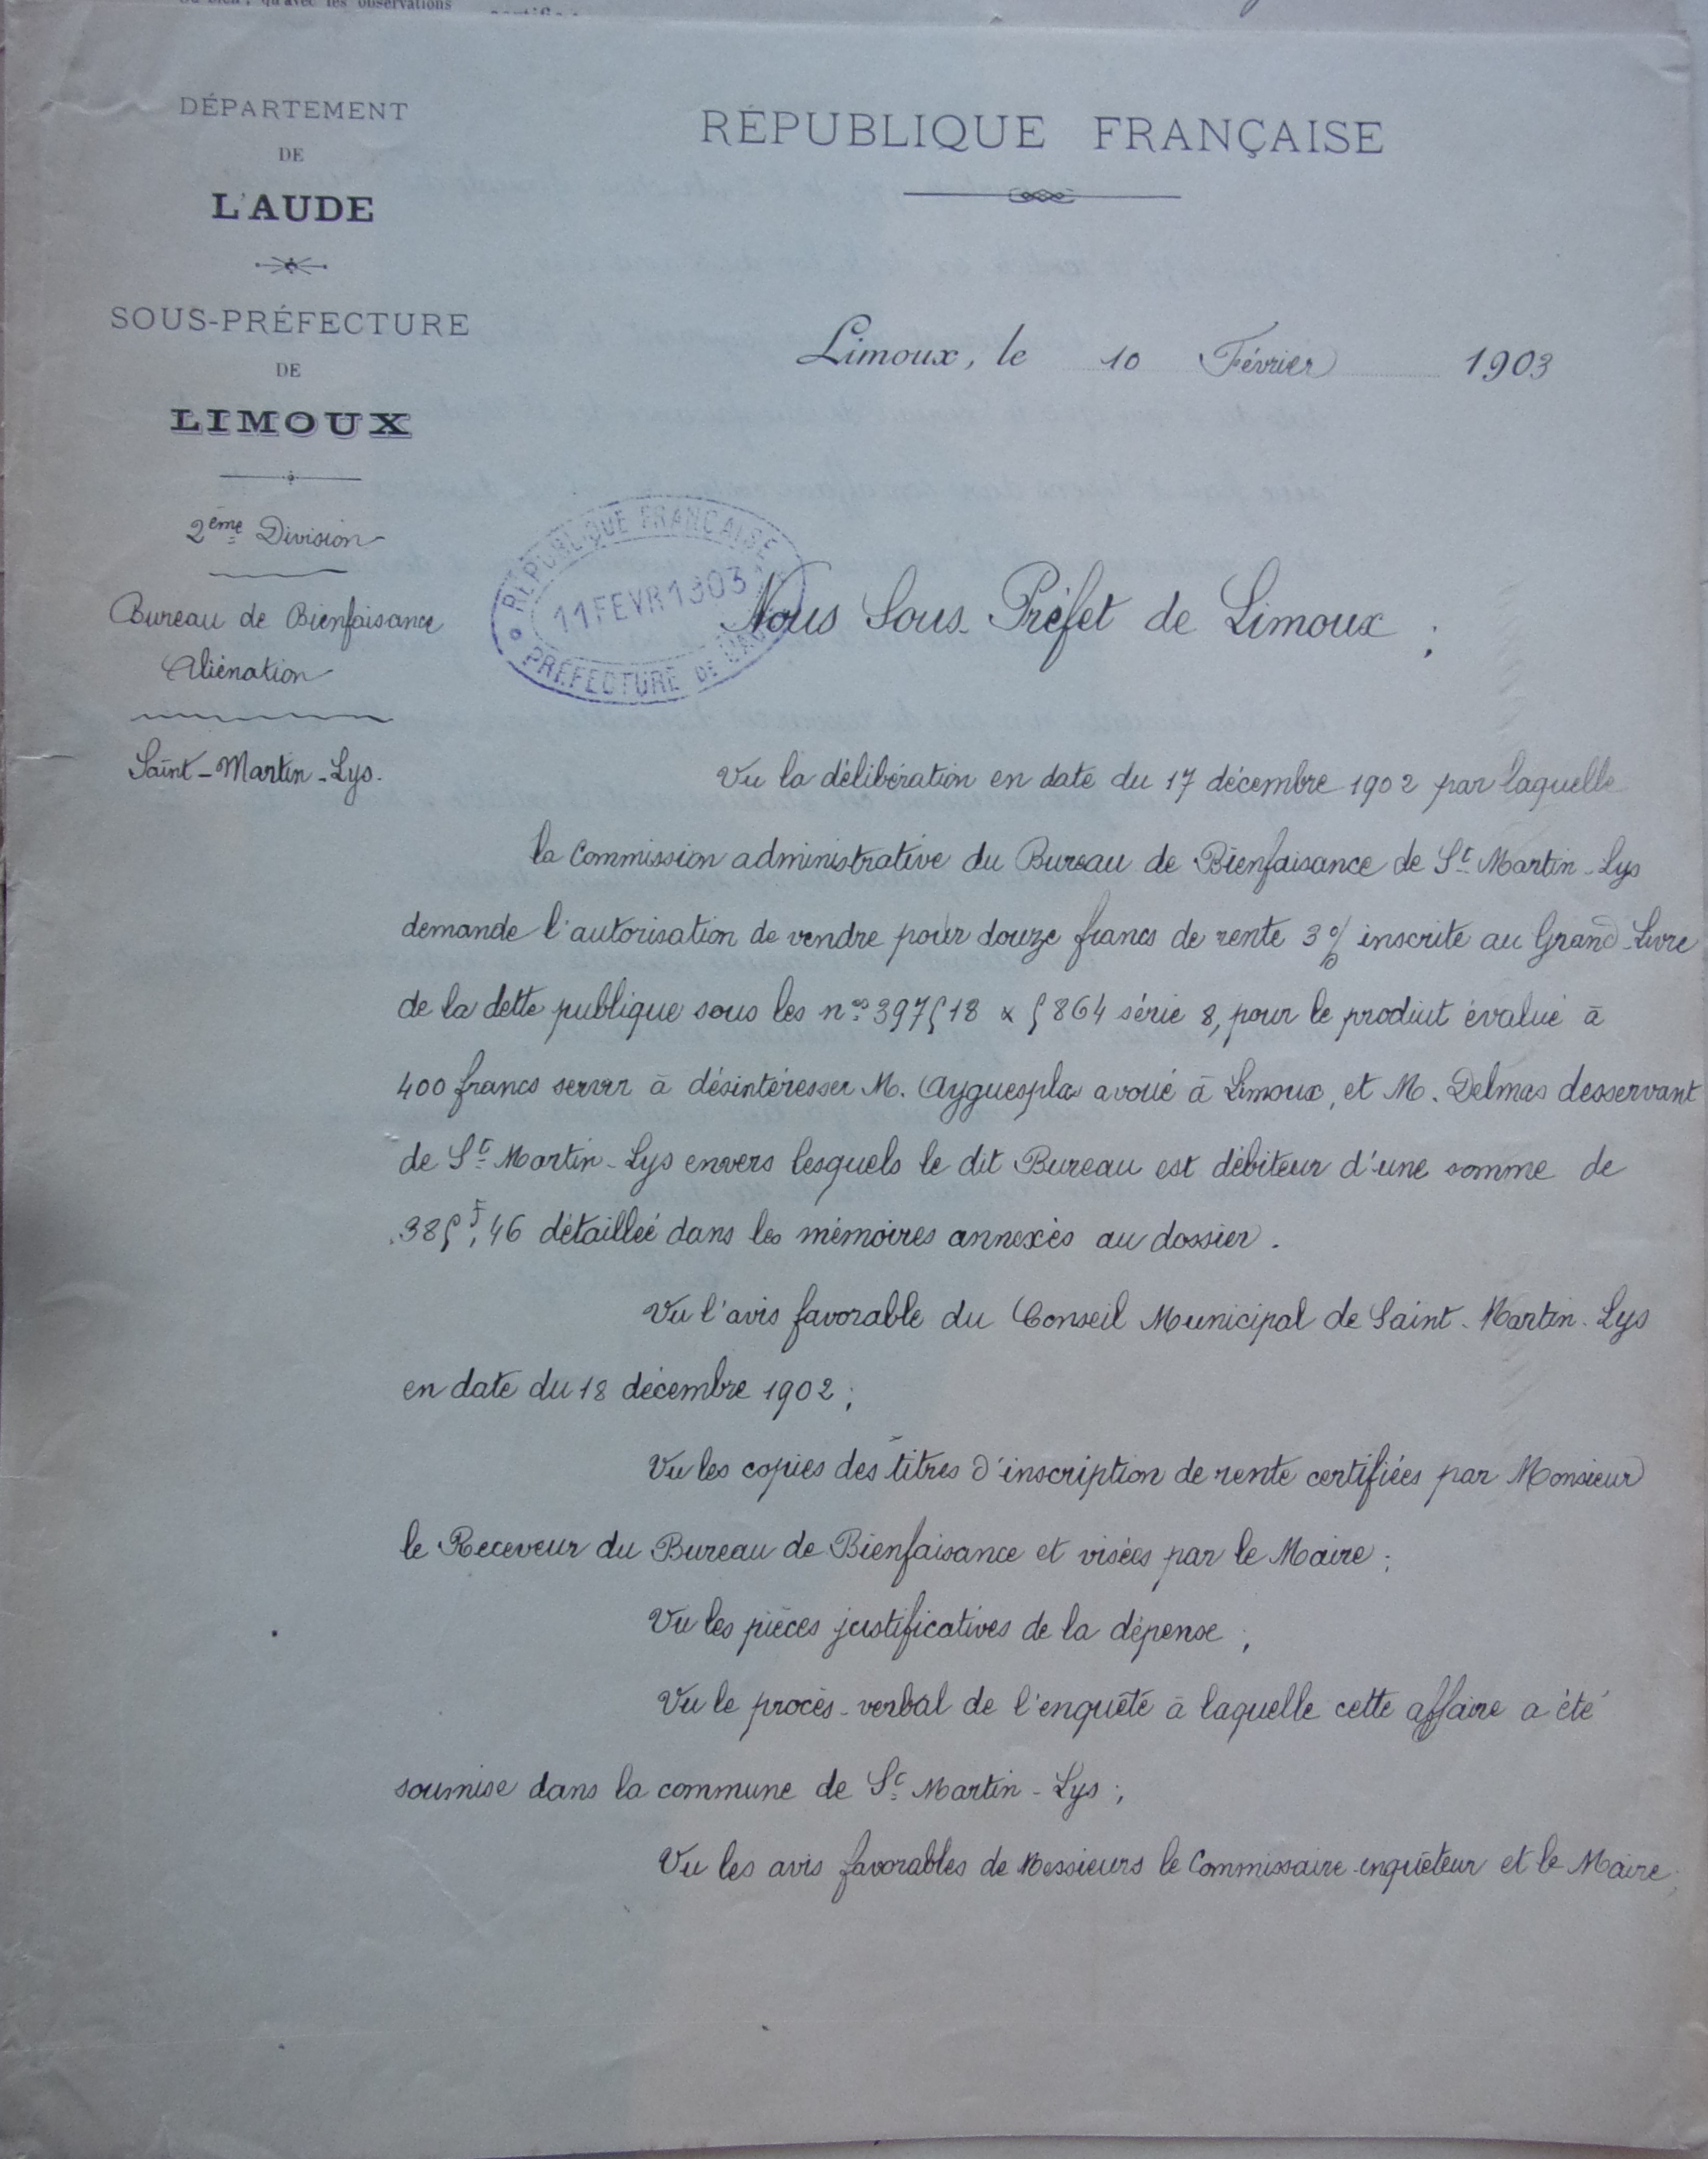 Ou bien, qu'avec les observations
DÉPARTEMENT
DE
L'AUDE
SOUS-PRÉFECTURE
DE
LIMOUX
2ème Division
Bureau de Bienfaisance
Aliénation
Saint-Martin-Lys.
RÉPUBLIQUE FRANÇAISE
Limoux, le 10 Février 1903
RÉPUBLIQUE FRANÇAISE
11 FEVR 1903
PRÉFECTURE DE L'AUDE
Nous Sous-Préfet de Limoux ;
Vu la délibération en date du 17 décembre 1902 par laquelle
la Commission administrative du Bureau de Bienfaisance de St Martin-Lys
demande l'autorisation de vendre pour douze francs de rente 3% inscrite au Grand-Livre
de la dette publique sous les nos 397518 & 5864 série 8, pour le produit évalué à
400 francs servir à désintéresser M. Ayguesplas avoué à Limoux, et M. Delmas desservant
de St Martin-Lys envers lesquels le dit Bureau est débiteur d'une somme de
385f,46 détaillée dans les mémoires annexés au dossier.
Vu l'avis favorable du Conseil Municipal de Saint-Martin-Lys
en date du 18 décembre 1902 ;
Vu les copies des titres d'inscription de rente certifiées par Monsieur
le Receveur du Bureau de Bienfaisance et visées par le Maire ;
Vu les pièces justificatives de la dépense ;
Vu le procès-verbal de l'enquête à laquelle cette affaire a été
soumise dans la commune de St Martin-Lys ;
Vu les avis favorables de Messieurs le Commissaire-enquêteur et le Maire ;